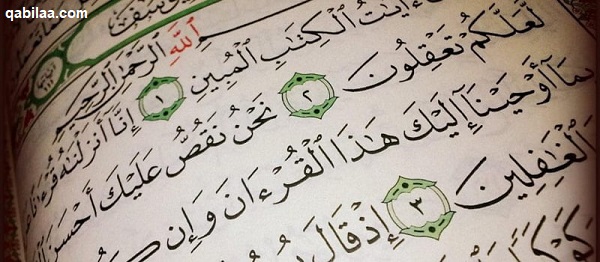 qabilaa.com
ٱللَّهِ ٱلرَّحْمَٰنِ ٱلرَّحِيمِ
ءَايَٰتُ ٱلْكِتَٰبِ ٱلْمُبِينِ ١ إِنَّآ أَنزَلْنَٰهُ قُرْءَٰنًا
لَّعَلَّكُمْ تَعْقِلُونَ ٢ نَحْنُ نَقُصُّ عَلَيْكَ أَحْسَنَ
بِمَآ أَوْحَيْنَآ إِلَيْكَ هَٰذَا ٱلْقُرْءَانَ وَإِن
ٱلْغَٰفِلِينَ ٣ إِذْ قَالَ